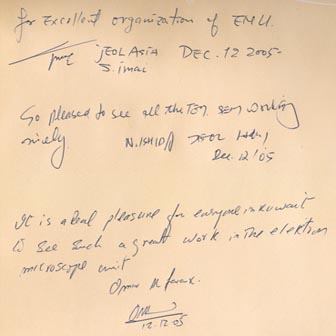 for Excellent organization of EMU.
JEOL ASIA DEC. 12 2005-
S. imai
So pleased to see all the TEM. SEM working
nicely N. ISHIDA JEOL
Dec. 12/'05
It is a real pleasure for everyone in kuwait
to see such a great work in the elektron
microscope unit
Omar
12.12.05